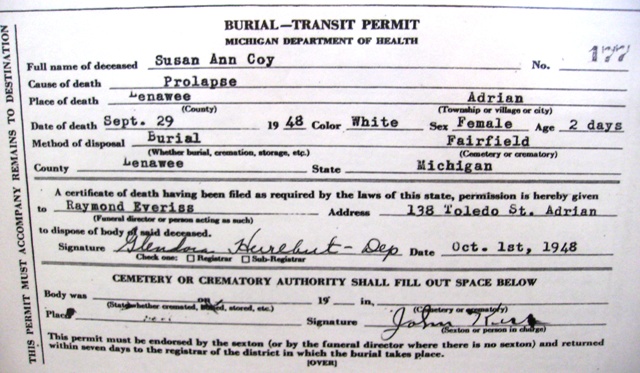 BURIAL—TRANSIT PERMIT
MICHIGAN DEPARTMENT OF HEALTH
Full name of deceased Susan Ann Coy No. 177
Cause of death Prolapse
Place of death Lenawee Adrian
(County) (Township or village or city)
Date of death Sept. 29 1948 Color White Sex Female Age 2 days
Method of disposal Burial Fairfield
(Whether burial, cremation, storage, etc.) (Cemetery or crematory)
County Lenawee State Michigan
A certificate of death having been filed as required by the laws of this state, permission is hereby given
to Raymond Everiss Address 138 Toledo St. Adrian
(Funeral director or person acting as such)
to dispose of body of said deceased.
Signature Glendora Hurlbut - Dep Date Oct. 1st, 1948
Check one: ☐ Registrar ☐ Sub-Registrar
CEMETERY OR CREMATORY AUTHORITY SHALL FILL OUT SPACE BELOW
Body was 19 in,
(State whether cremated, stored, etc.) (Cemetery or crematory)
Place Signature John
(Sexton or person in charge)
This permit must be endorsed by the sexton (or by the funeral director where there is no sexton) and returned
within seven days to the registrar of the district in which the burial takes place.
[OVER]
THIS PERMIT MUST ACCOMPANY REMAINS TO DESTINATION